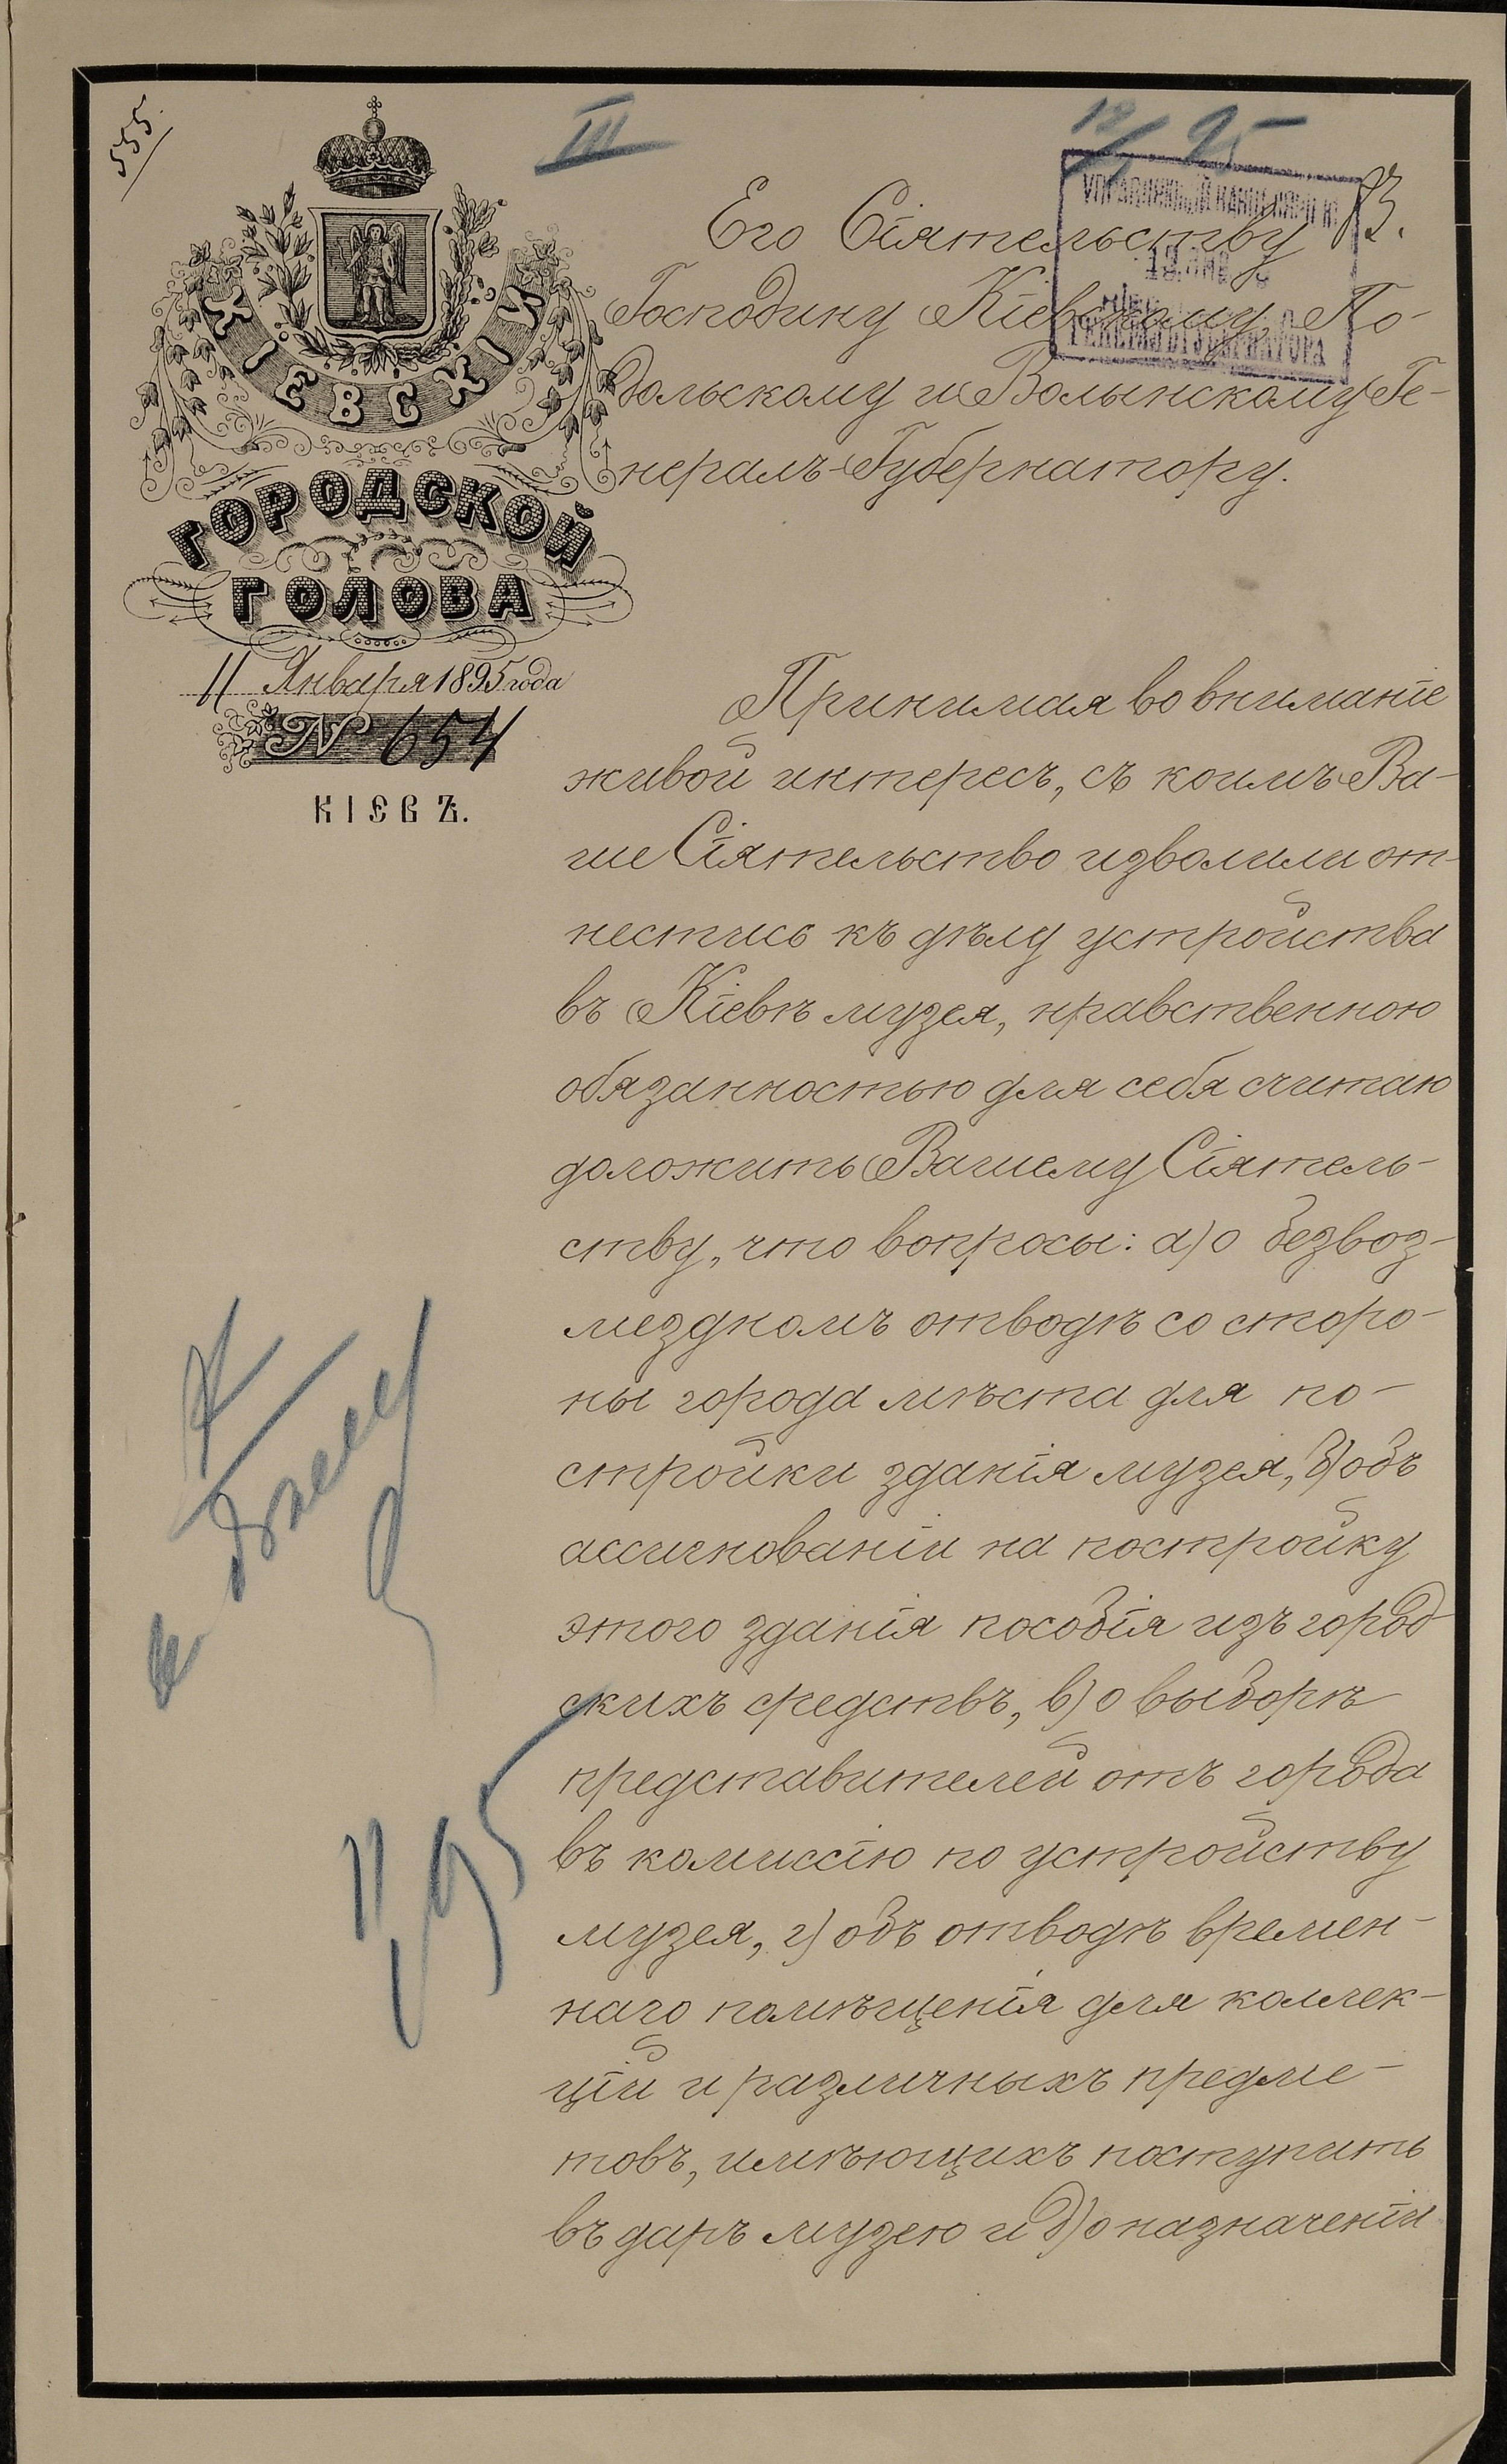 555.
III
12/95
93.
УПРАВЛЯЮЩІЙ КАНЦЕЛЯРІЕЮ
ГЕНЕРАЛЪ-ГУБЕРНАТОРА
КІЕВСКІЙ
ГОРОДСКОЙ
ГОЛОВА
11 Января 1895 года
№ 654
КІЕВЪ.
Его Сіятельству
Господину Кіевскому, По-
дольскому и Волынскому Ге-
нералъ-Губернатору.
Принимая во вниманіе
живой интересъ, съ коимъ Ва-
ше Сіятельство изволили от-
нестись къ дѣлу устройства
въ Кіевѣ музея, нравственною
обязанностью для себя считаю
доложить Вашему Сіятель-
ству, что вопросы: а) о безвоз-
мездномъ отводѣ со сторо-
ны города мѣста для по-
стройки зданія музея, б) объ
ассигнованіи на постройку
этого зданія пособія изъ город
скихъ средствъ, в) о выборѣ
представителей отъ города
въ комиссію по устройству
музея, г) объ отводѣ времен-
наго помѣщенія для коллек-
цій и различныхъ предме-
товъ, имѣющихъ поступить
въ даръ музею и д) о назначеніи
К
95